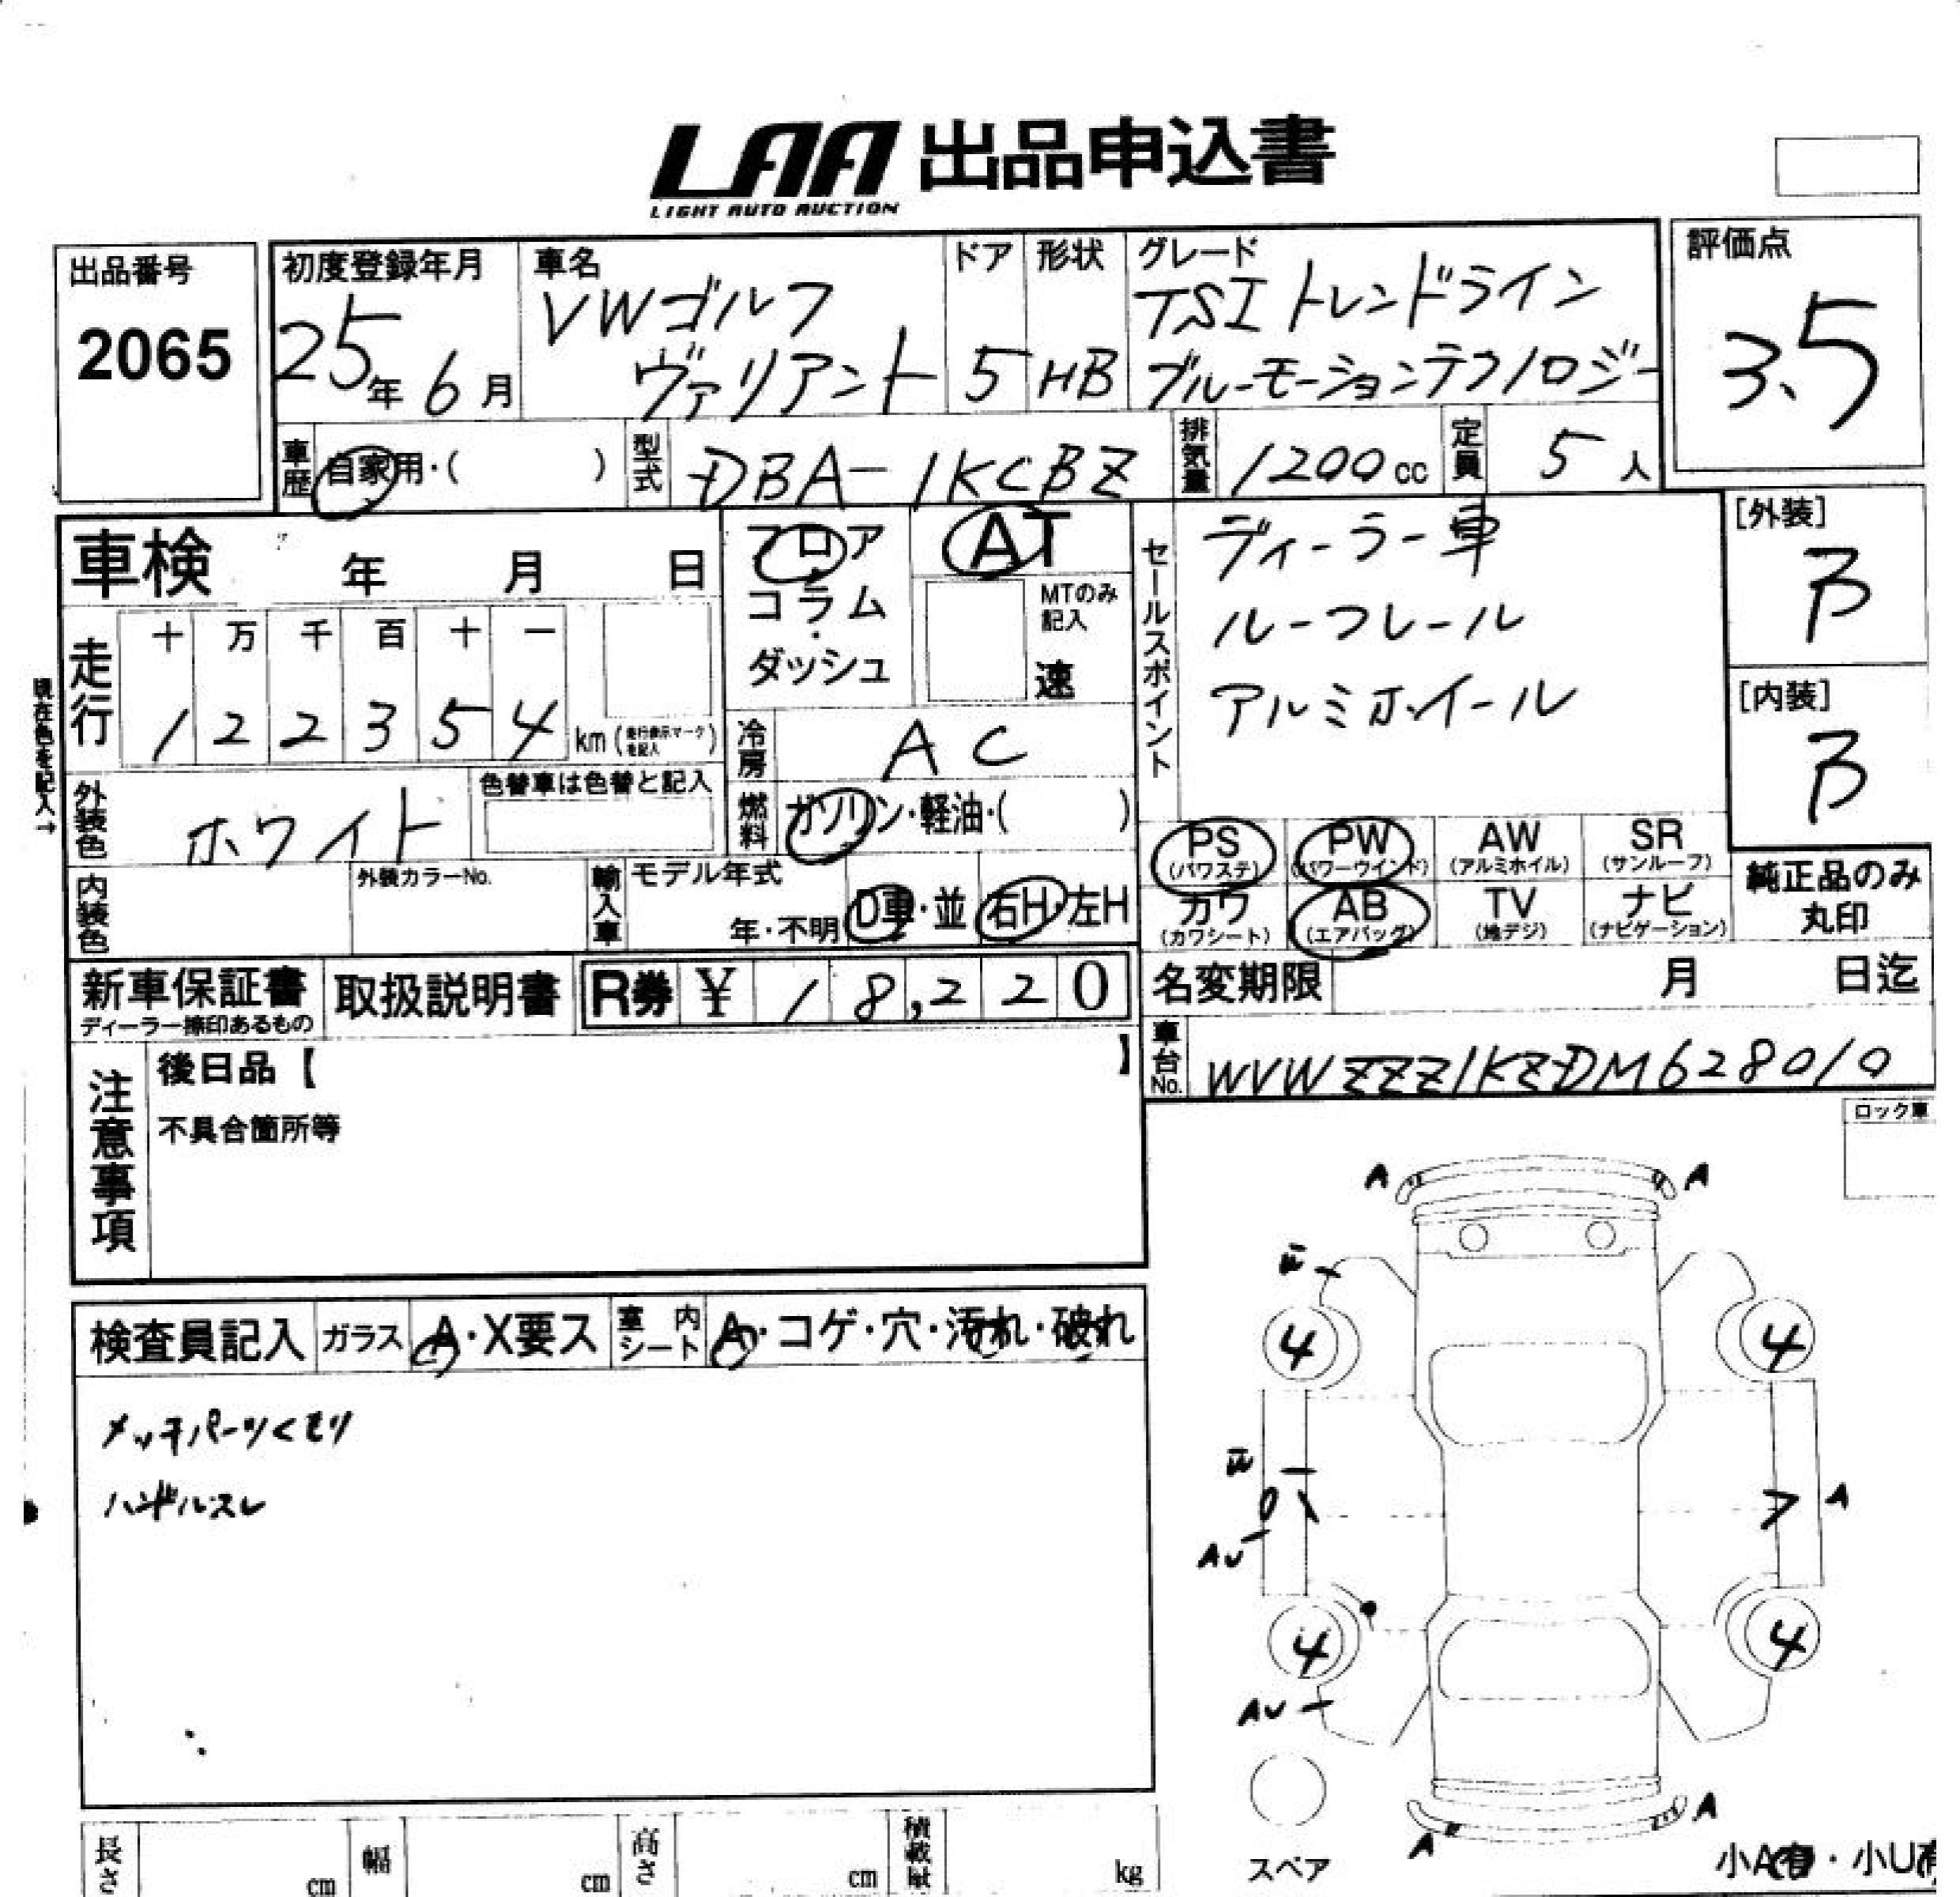 LAA 出品申込書
LIGHT AUTO AUCTION
出品番号
2065
初度登録年月
25年6月
車名
VWゴルフ
ヴァリアント
ドア
5
形状
HB
グレード
TSIトレンドライン
ブルーモーションテクノロジー
評価点
3.5
車歴 自家用・( )
型式 DBA-1KCBZ
排気量 1200cc
定員 5人
車検 年 月 日
フロア
コラム
・
ダッシュ
AT
MTのみ
記入
速
セールスポイント
ディーラー車
ルーフレール
アルミホイール
[外装]
B
[内装]
B
現在色を記入→
走行
十 万 千 百 十 一
1 2 2 3 5 4 km (走行表示マークを記入)
冷房 AC
外装色 ホワイト
色替車は色替と記入
燃料 ガソリン・軽油・( )
内装色
外装カラーNo.
輸入車
モデル年式
年・不明
D車・並
右H・左H
PS (パワステ)
PW (パワーウインド)
AW (アルミホイル)
SR (サンルーフ)
カワ (カワシート)
AB (エアバッグ)
TV (地デジ)
ナビ (ナビゲーション)
純正品のみ
丸印
新車保証書
ディーラー捺印あるもの
取扱説明書
R券 ¥ 18,220
名変期限 月 日迄
車台No. WVWZZZ1KZDM628010
注意事項
後日品【 】
不具合箇所等
ロック車
検査員記入
ガラス A・X要ス
室内シート A・コゲ・穴・汚れ・破れ
メッキパーツくもり
ハンドルスレ
A A
4 4
A
AU
4 4
AU
A
A
スペア
小A有・小U有
長さ cm
幅 cm
高さ cm
積載量 kg